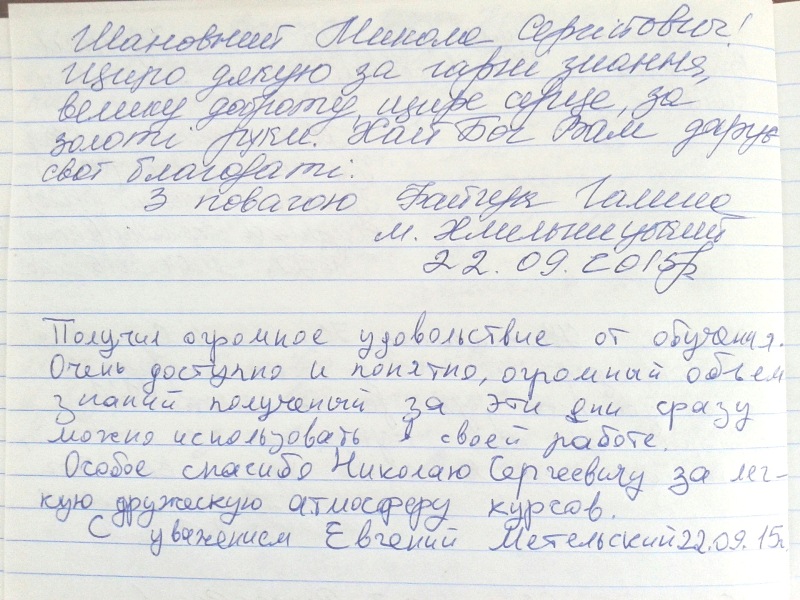 Шановний Микола Сергійович!
Щиро дякую за гарні знання,
велику доброту, щире серце, за
золоті руки. Хай Бог Вам дарує
свої благодаті.
З повагою Галина
м. Хмельницький
22.09.2015р
Получил огромное удовольствие от обучения.
Очень доступно и понятно, огромный объем
знаний полученый за эти дни сразу
можно использовать в своей работе.
Особое спасибо Николаю Сергеевичу за лег-
кую дружескую атмосферу курсов.
С уважением Евгений Метельский 22.09.15г.